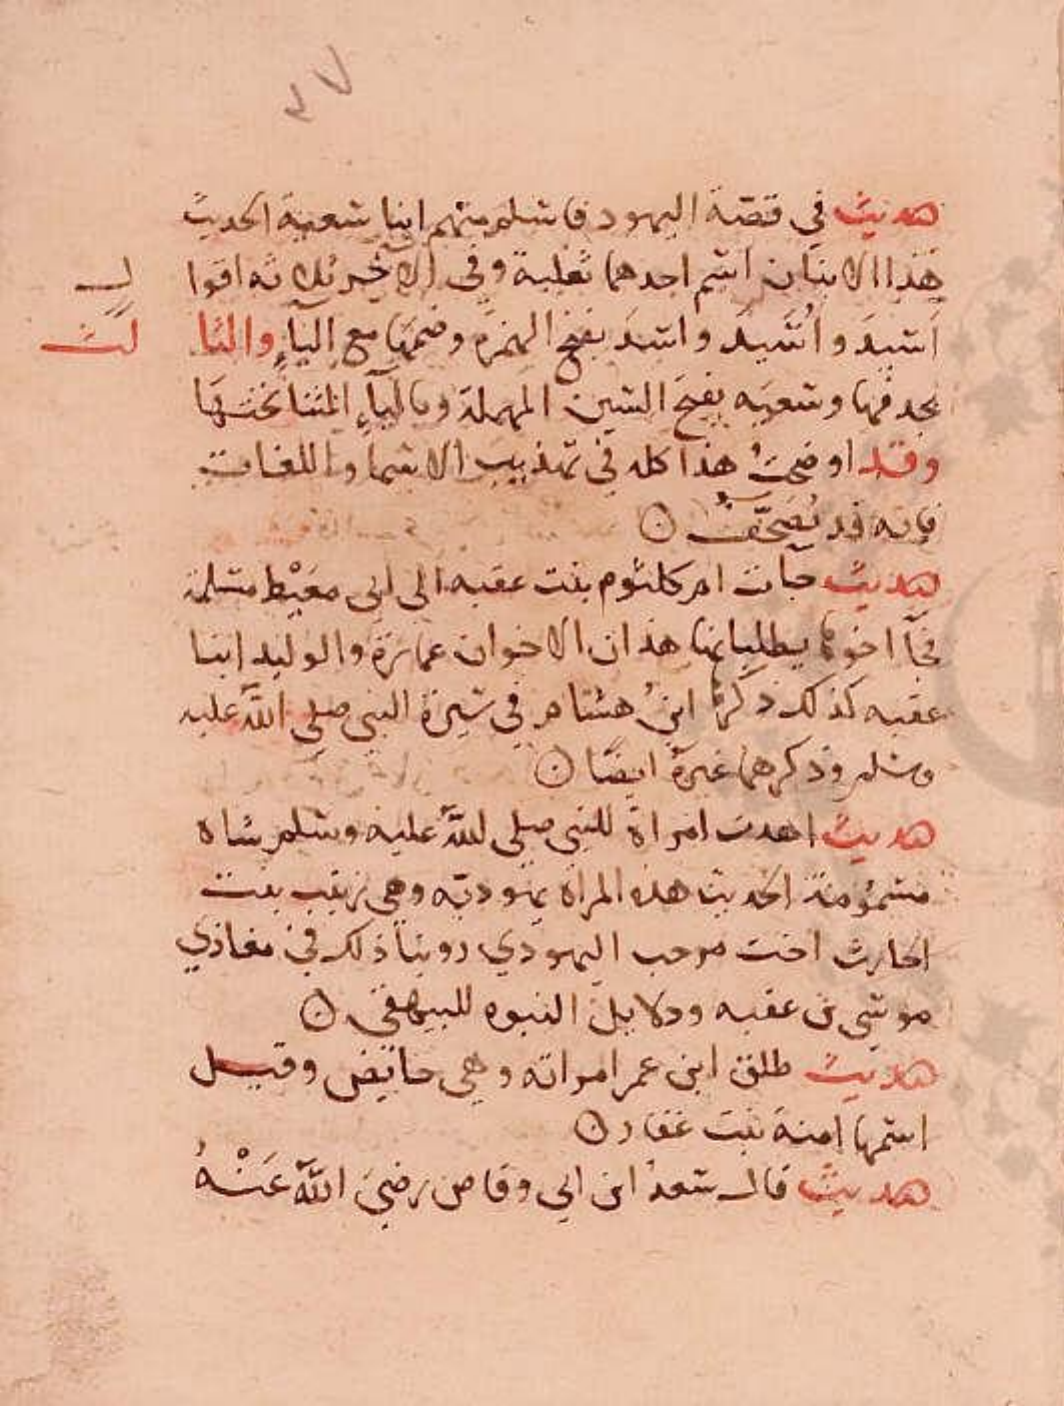 ٢٧
حديث في قصة اليهود فاسلم منهم ابنا سعية الحديث
هذا الابنان اسم احدهما ثعلبة وفي الآخر ثلاثه اقوا
اَسِيدَ و اُسَيدَ و اسَدَ بفتح الهمزة وضمها مع اليآءِ والثا
بحذفها وسعيه بفتح السين المهملة وباليآءِ المثنا تحتها
وقد اوضحتُ هذا كله في تهذيب الاسما واللغات
فانه قد يُصَحَّفُ ه
حديث جآت ام كلثوم بنت عقبه الى ابى معَيْط مسلمة
فجآ اخوها يطلبانها هذان الاخوان عمارة والوليد ابنا
عقبه كذلك ذكرهما ابنُ هشام في سيرة النبي صلى اللّه عليه
وسلم وذكرهما غيره ايضًا ه
حديث اهدت امراة للنبي صلى للّه عليه وسلم شاه
مسمُومة الحديث هذه المراة يهوديه وهى زينب بنت
الحارث اخت مرحب اليهودي روينا ذلك في مغازي
موسى بن عقبه ودلايل النبوه للبيهقي ه
حديث طلق ابن عمر امراته وهي حائض وقيل
اسمها امنة بنت غفار ه
حديث قال سعدُ ابن ابي وقاص رضيَ اللّه عَنْهُ